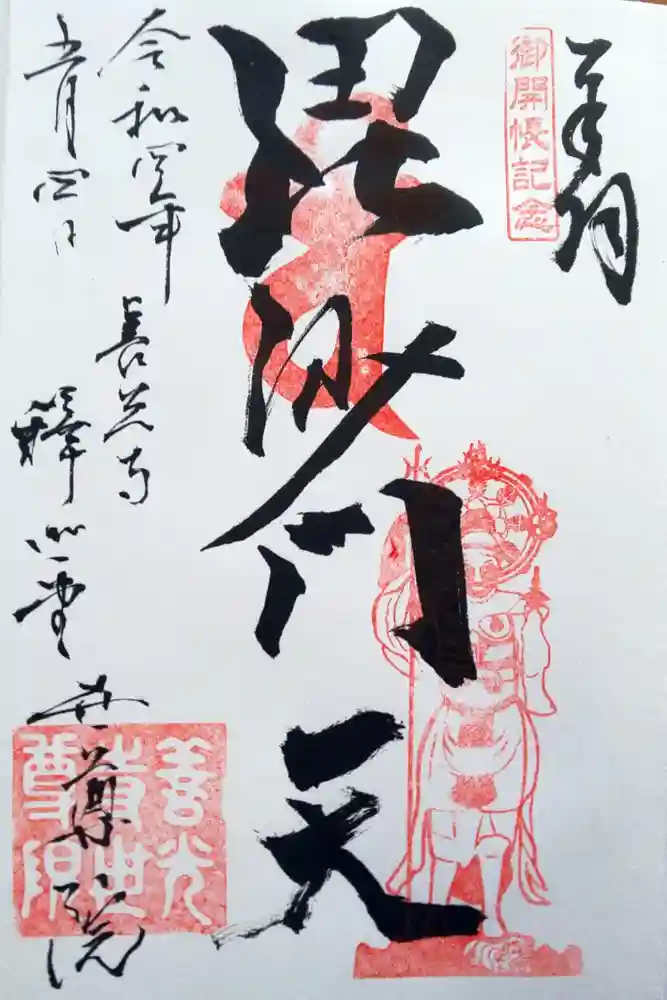 奉拝
御開帳記念
毘沙門天
令和四年
五月四日
善光寺
釋迦堂
世尊院
善光
寺世
尊院